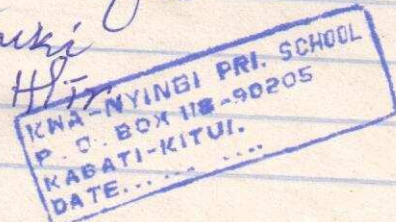 H/Tr
KWA-NYINGI PRI. SCHOOL
P. O. BOX 118-90205
KABATI-KITUI.
DATE..........